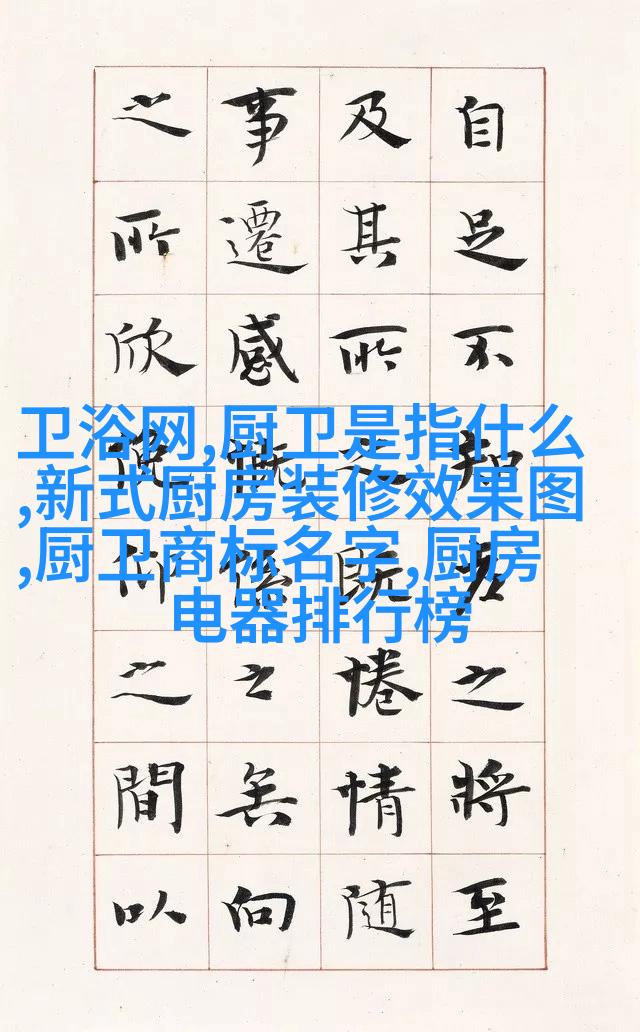 自足不知老之將至
及其所之既惓情隨
事遷感慨係之矣向
之所欣俛仰之間以
卫浴网,厨卫是指什么
,新式厨房装修效果图
,厨卫商标名字,厨房
电器排行榜